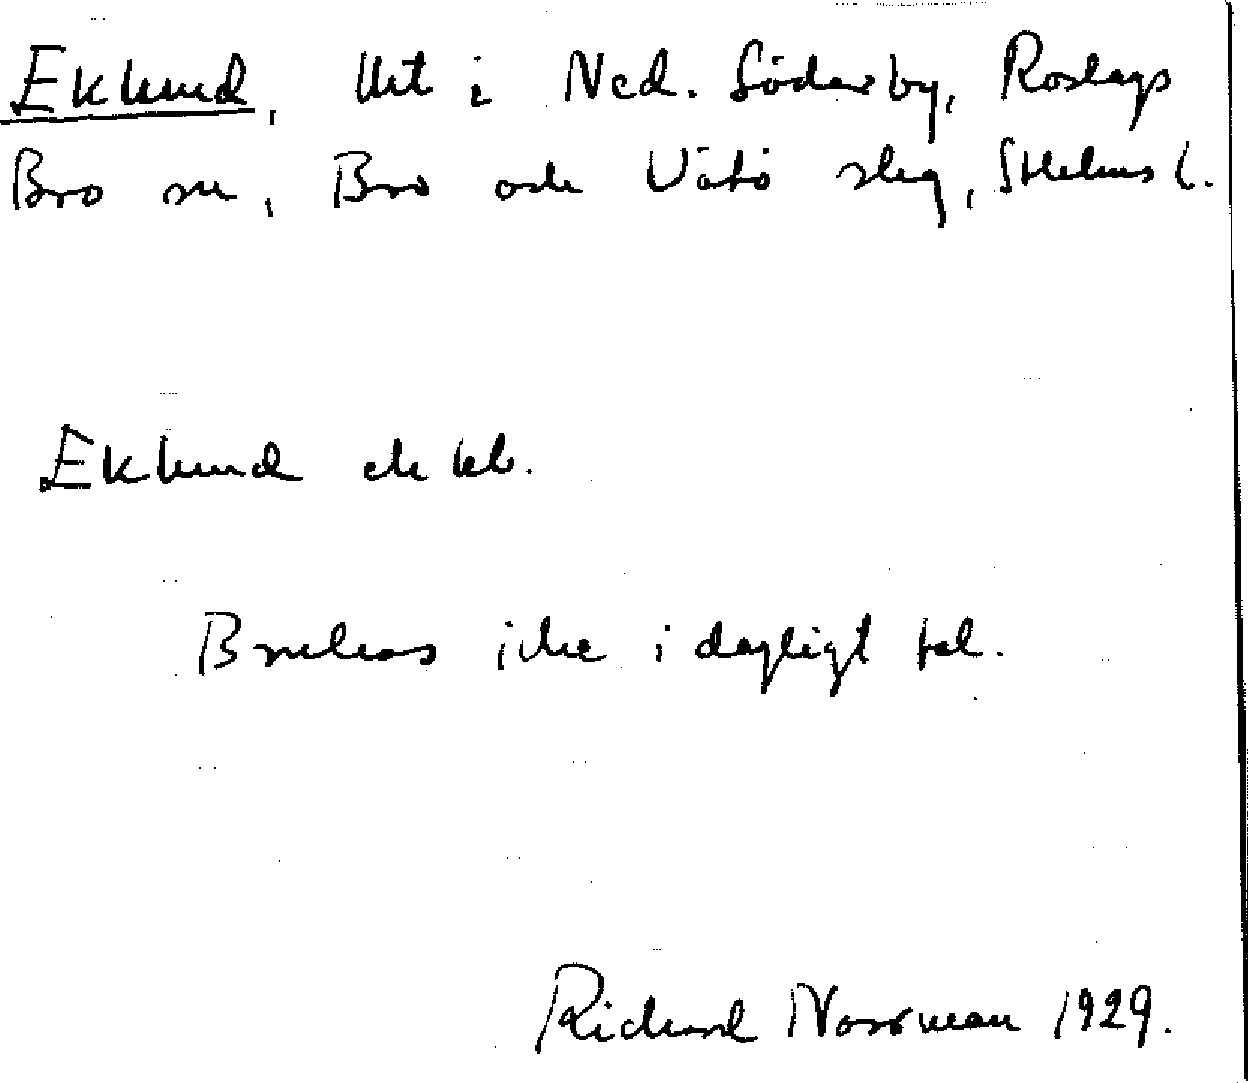 Eklund, lht i Ned. Söderby, Roslags
Bro sn, Bro och Vätö skg, Sthlms l.
Eklund ek kb.
Brukas icke i dagligt tal.
Richard Norrman 1929.